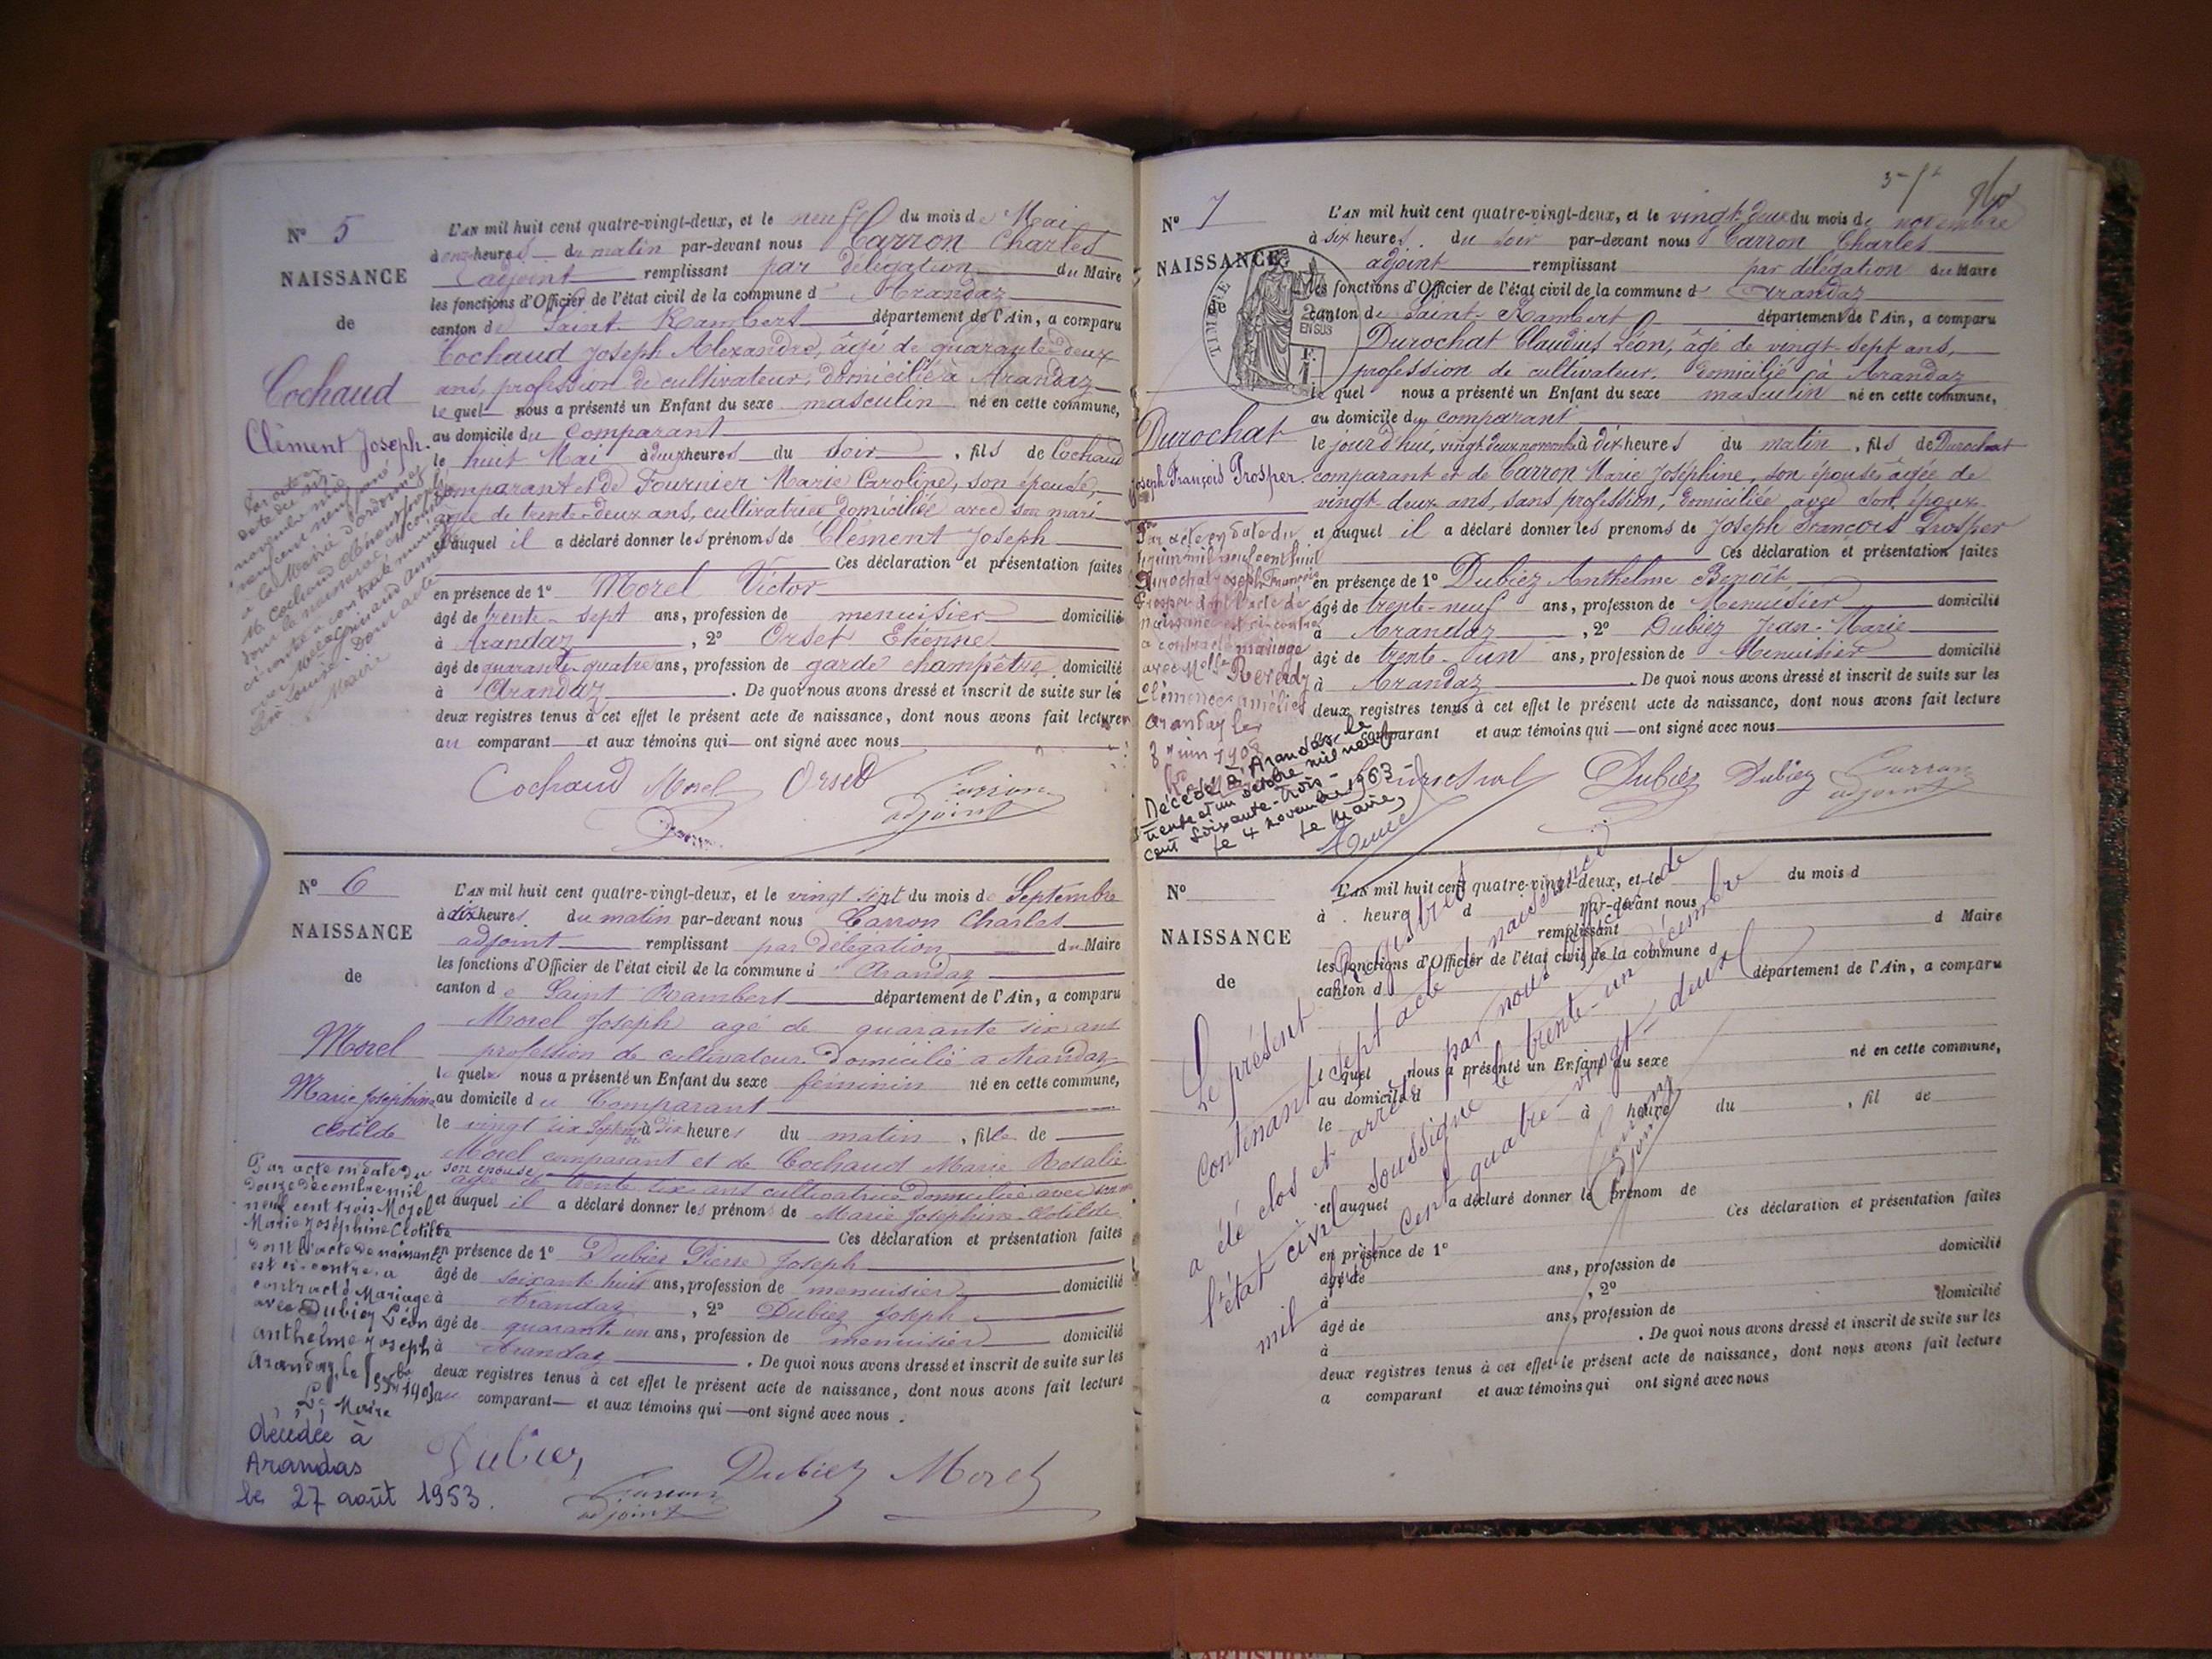 N° 5
NAISSANCE
de
Cochaud
Clément Joseph.
L'AN mil huit cent quatre-vingt-deux, et le neuf du mois de Mai
à onze heures du matin par-devant nous Carron Charles
adjoint remplissant par délégation du Maire
les fonctions d'Officier de l'état civil de la commune d' Arandaz
canton de Saint-Rambert département de l'Ain, a comparu
Cochaud Joseph Alexandre, âgé de quarante-deux
ans, profession de cultivateur, domicilié à Arandaz
le quel nous a présenté un Enfant du sexe masculin né en cette commune,
au domicile du comparant
le huit Mai à deux heures du soir, fils de Cochaud
comparant et de Fournier Marie Caroline, son épouse,
agée de trente-deux ans, cultivatrice domiciliée avec son mari
et auquel il a déclaré donner les prénoms de Clément Joseph
Ces déclaration et présentation faites
en présence de 1° Morel Victor
âgé de trente-sept ans, profession de menuisier domicilié
à Arandaz, 2° Orset Etienne
âgé de quarante-quatre ans, profession de garde champêtre, domicilié
à Arandaz. De quoi nous avons dressé et inscrit de suite sur les
deux registres tenus à cet effet le présent acte de naissance, dont nous avons fait lecture
au comparant et aux témoins qui ont signé avec nous
Cochaud Morel Orset Carron
adjoint
N° 6
NAISSANCE
de
Morel
Marie Joséphine
Clotilde
Par acte en date du
douze décembre mil
neuf cent trois Morel
Marie Joséphine Clotilde
dont l'acte de naissance
est ci-contre a
contracté Mariage
avec Dubiez Léon
Anthelme Joseph
Arandaz, le
Le Maire
décédée à
Arandas
le 27 août 1953.
L'AN mil huit cent quatre-vingt-deux, et le vingt sept du mois de Septembre
à dix heures du matin par-devant nous Carron Charles
adjoint remplissant par délégation du Maire
les fonctions d'Officier de l'état civil de la commune d' Arandaz
canton de Saint Rambert département de l'Ain, a comparu
Morel Joseph agé de quarante six ans
profession de cultivateur domicilié a Arandaz
le quel nous a présenté un Enfant du sexe féminin né en cette commune,
au domicile du Comparant
le vingt six Septembre à dix heures du matin, fille de
Morel comparant et de Cochaud Marie Rosalie
son épouse
agée de trente six ans cultivatrice domiciliée avec son
et auquel il a déclaré donner les prénoms de Marie Joséphine Clotilde
Ces déclaration et présentation faites
en présence de 1° Dubiez Pierre Joseph
âgé de soixante huit ans, profession de menuisier domicilié
à Arandaz, 2° Dubiez Joseph
âgé de quarante un ans, profession de menuisier domicilié
à Arandaz. De quoi nous avons dressé et inscrit de suite sur les
deux registres tenus à cet effet le présent acte de naissance, dont nous avons fait lecture
au comparant et aux témoins qui ont signé avec nous.
Dubiez Dubiez Morel
Carron
adjoint
N° 7
NAISSANCE
de
TIMBRE
2/10es
EN SUS
Durochat
Joseph François Prosper
Par acte en date du
juin mil neuf cent huit
Durochat Joseph François
Prosper dont l'acte de
naissance est ci-contre
a contracté mariage
avec Melle Reverdy
Clémence Amélie
Arandaz le
8 juin 1908
Décédé à Arandas le
trente et un octobre mil neuf
cent soixante-trois
le 4 novembre 1963
Le Maire,
L'AN mil huit cent quatre-vingt-deux, et le vingt deux du mois de novembre
à six heures du soir par-devant nous Carron Charles
adjoint remplissant par délégation du Maire
les fonctions d'Officier de l'état civil de la commune d' Arandaz
canton de Saint-Rambert département de l'Ain, a comparu
Durochat Claudius Léon, âgé de vingt-sept ans,
profession de cultivateur, domicilié à Arandaz
le quel nous a présenté un Enfant du sexe masculin né en cette commune,
au domicile du comparant
le jourd'hui, vingt deux novembre à dix heures du matin, fils de Durochat
comparant et de Carron Marie Joséphine, son épouse, agée de
vingt-deux ans, sans profession, domiciliée avec son époux
et auquel il a déclaré donner les prénoms de Joseph François Prosper
Ces déclaration et présentation faites
en présence de 1° Dubiez Anthelme Benoît
âgé de trente-neuf ans, profession de Menuisier domicilié
à Arandaz, 2° Dubiez Jean-Marie
âgé de trente-un ans, profession de Menuisier domicilié
à Arandaz. De quoi nous avons dressé et inscrit de suite sur les
deux registres tenus à cet effet le présent acte de naissance, dont nous avons fait lecture
au comparant et aux témoins qui ont signé avec nous
Durochat Dubiez Dubiez Carron
adjoint
N°
NAISSANCE
de
L'AN mil huit cent quatre-vingt-deux, et le du mois d
à heure d par-devant nous
remplissant d Maire
les fonctions d'Officier de l'état civil de la commune d
canton d département de l'Ain, a comparu
le quel nous a présenté un Enfant du sexe né en cette commune,
au domicile d
le à heure du, fil de
et auquel a déclaré donner le prénom de
Ces déclaration et présentation faites
en présence de 1°
âgé de ans, profession de domicilié
à, 2°
âgé de ans, profession de domicilié
à. De quoi nous avons dressé et inscrit de suite sur les
deux registres tenus à cet effet le présent acte de naissance, dont nous avons fait lecture
a comparant et aux témoins qui ont signé avec nous
Le présent Registres
contenant sept acte de naissance
a été clos et arrêté par nous officier de
l'état civil soussigné le trente-un décembre
mil huit cent quatre-vingt-deux
Carron
adjoint